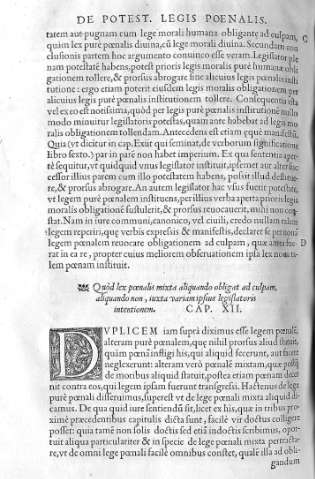 DE POTEST. LEGIS POENALIS.
tatem aut pugnam cum lege morali humana obligante ad culpam,
quim lex purè poenalis divina, cũ lege morali divina. Secundam con C
clusionis partem hoc argumento conuinco esse veram. Legislator ple
nam potestatẽ habens, potest prioris legis moralis purè humanæ obli
gationem tollere, & prorsus abrogare hac alicuius legis poenalis insti
tutione: ergo etiam poterit eiusdem legis moralis obligationem per
alicuius legis purè poenalis institutionem tollere. Consequentia ista
vel ex eo est notissima, quòd per legis purè poenalis institutionẽ nullo
modo minuitur legislatoris potestas, quam ante habebat ad legis mo
ralis obligationem tollendam. Antecedens est etiam eque manifestũ.
Quia (vt dicitur in cap. Exit qui seminat, de verborum significatione
libro sexto.) par in parẽ non habet imperium. Ex qua sententia aper-
tè sequitur, vt quidquid vnus legislator instituit, ipsemet aut alter suc-
cessor illius parem cum illo potestatem habens, possit illud destrue-
re, & prorsus abrogare. An autem legislator hac vsus fuerit potestate,
vt legem purè poenalem instituens, per illius verba aperta prioris legis
moralis obligationẽ sustulerit, & prorsus reuocauerit, mihi non con-
stat. Nam in iure communi, canonico, vel ciuili, credo nullam talem
legem reperiri, quę verbis expressis & manifestis, declaret se per nouã
legem poenalem reuocare obligationem ad culpam, quæ antè fue- D
rat in ea re, propter cuius meliorem obseruationem ipsa lex noua ta-
lem poenam instituit.
Quòd lex poenalis mixta aliquando obligat ad culpam,
aliquando non, iuxta variam ipsius legislatoris
intentionem. CAP. XII.
DVPLICEM iam suprà diximus esse legem poenalẽ,
alteram purè poenalem, quæ nihil prorsus aliud statuit,
quàm poenã infligi his, qui aliquid fecerunt, aut facere
neglexerunt: alteram verò poenalẽ mixtam, quæ postq̃
de moribus aliquid statuit, postea etiam poenam decer
nit contra eos, qui legem ipsam fuerunt transgressi. Hactenus de lege
purè poenali disseruimus, superest vt de lege poenali mixta aliquid di-
camus. De qua quid iure sentiendũ sit, licet ex his, quæ in tribus pro-
ximè præcedentibus capitulis dicta sunt, facilè vir doctus colligere
posset: quia tamẽ non solis doctis sed etiã indoctis scribimus, opor-
tuit aliqua particulariter & in specie de lege poenali mixta pertracta-
re, vt de omni lege poenali facilè omnibus constet, qualis illa ad obli-
gandum